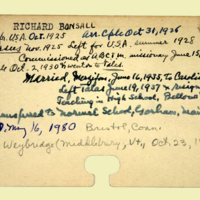 RICHARD BONSALL
U.S.A. Oct. 1925 arr. C'ple Oct 31, 1926
Nov. 1925 Left for U.S.A. summer 1928
Commissioned as A.B.C.F.M. missionary June 15,
Oct. 2, 1930
Married, June 15, 1935, to
Left June 19, 1937 & resigned
Teaching in High School,
Transferred to Normal School, Gorham, Maine
D. May 16, 1980 Bristol, Conn.
Weybridge (Middlebury, Vt., Oct. 23, 1